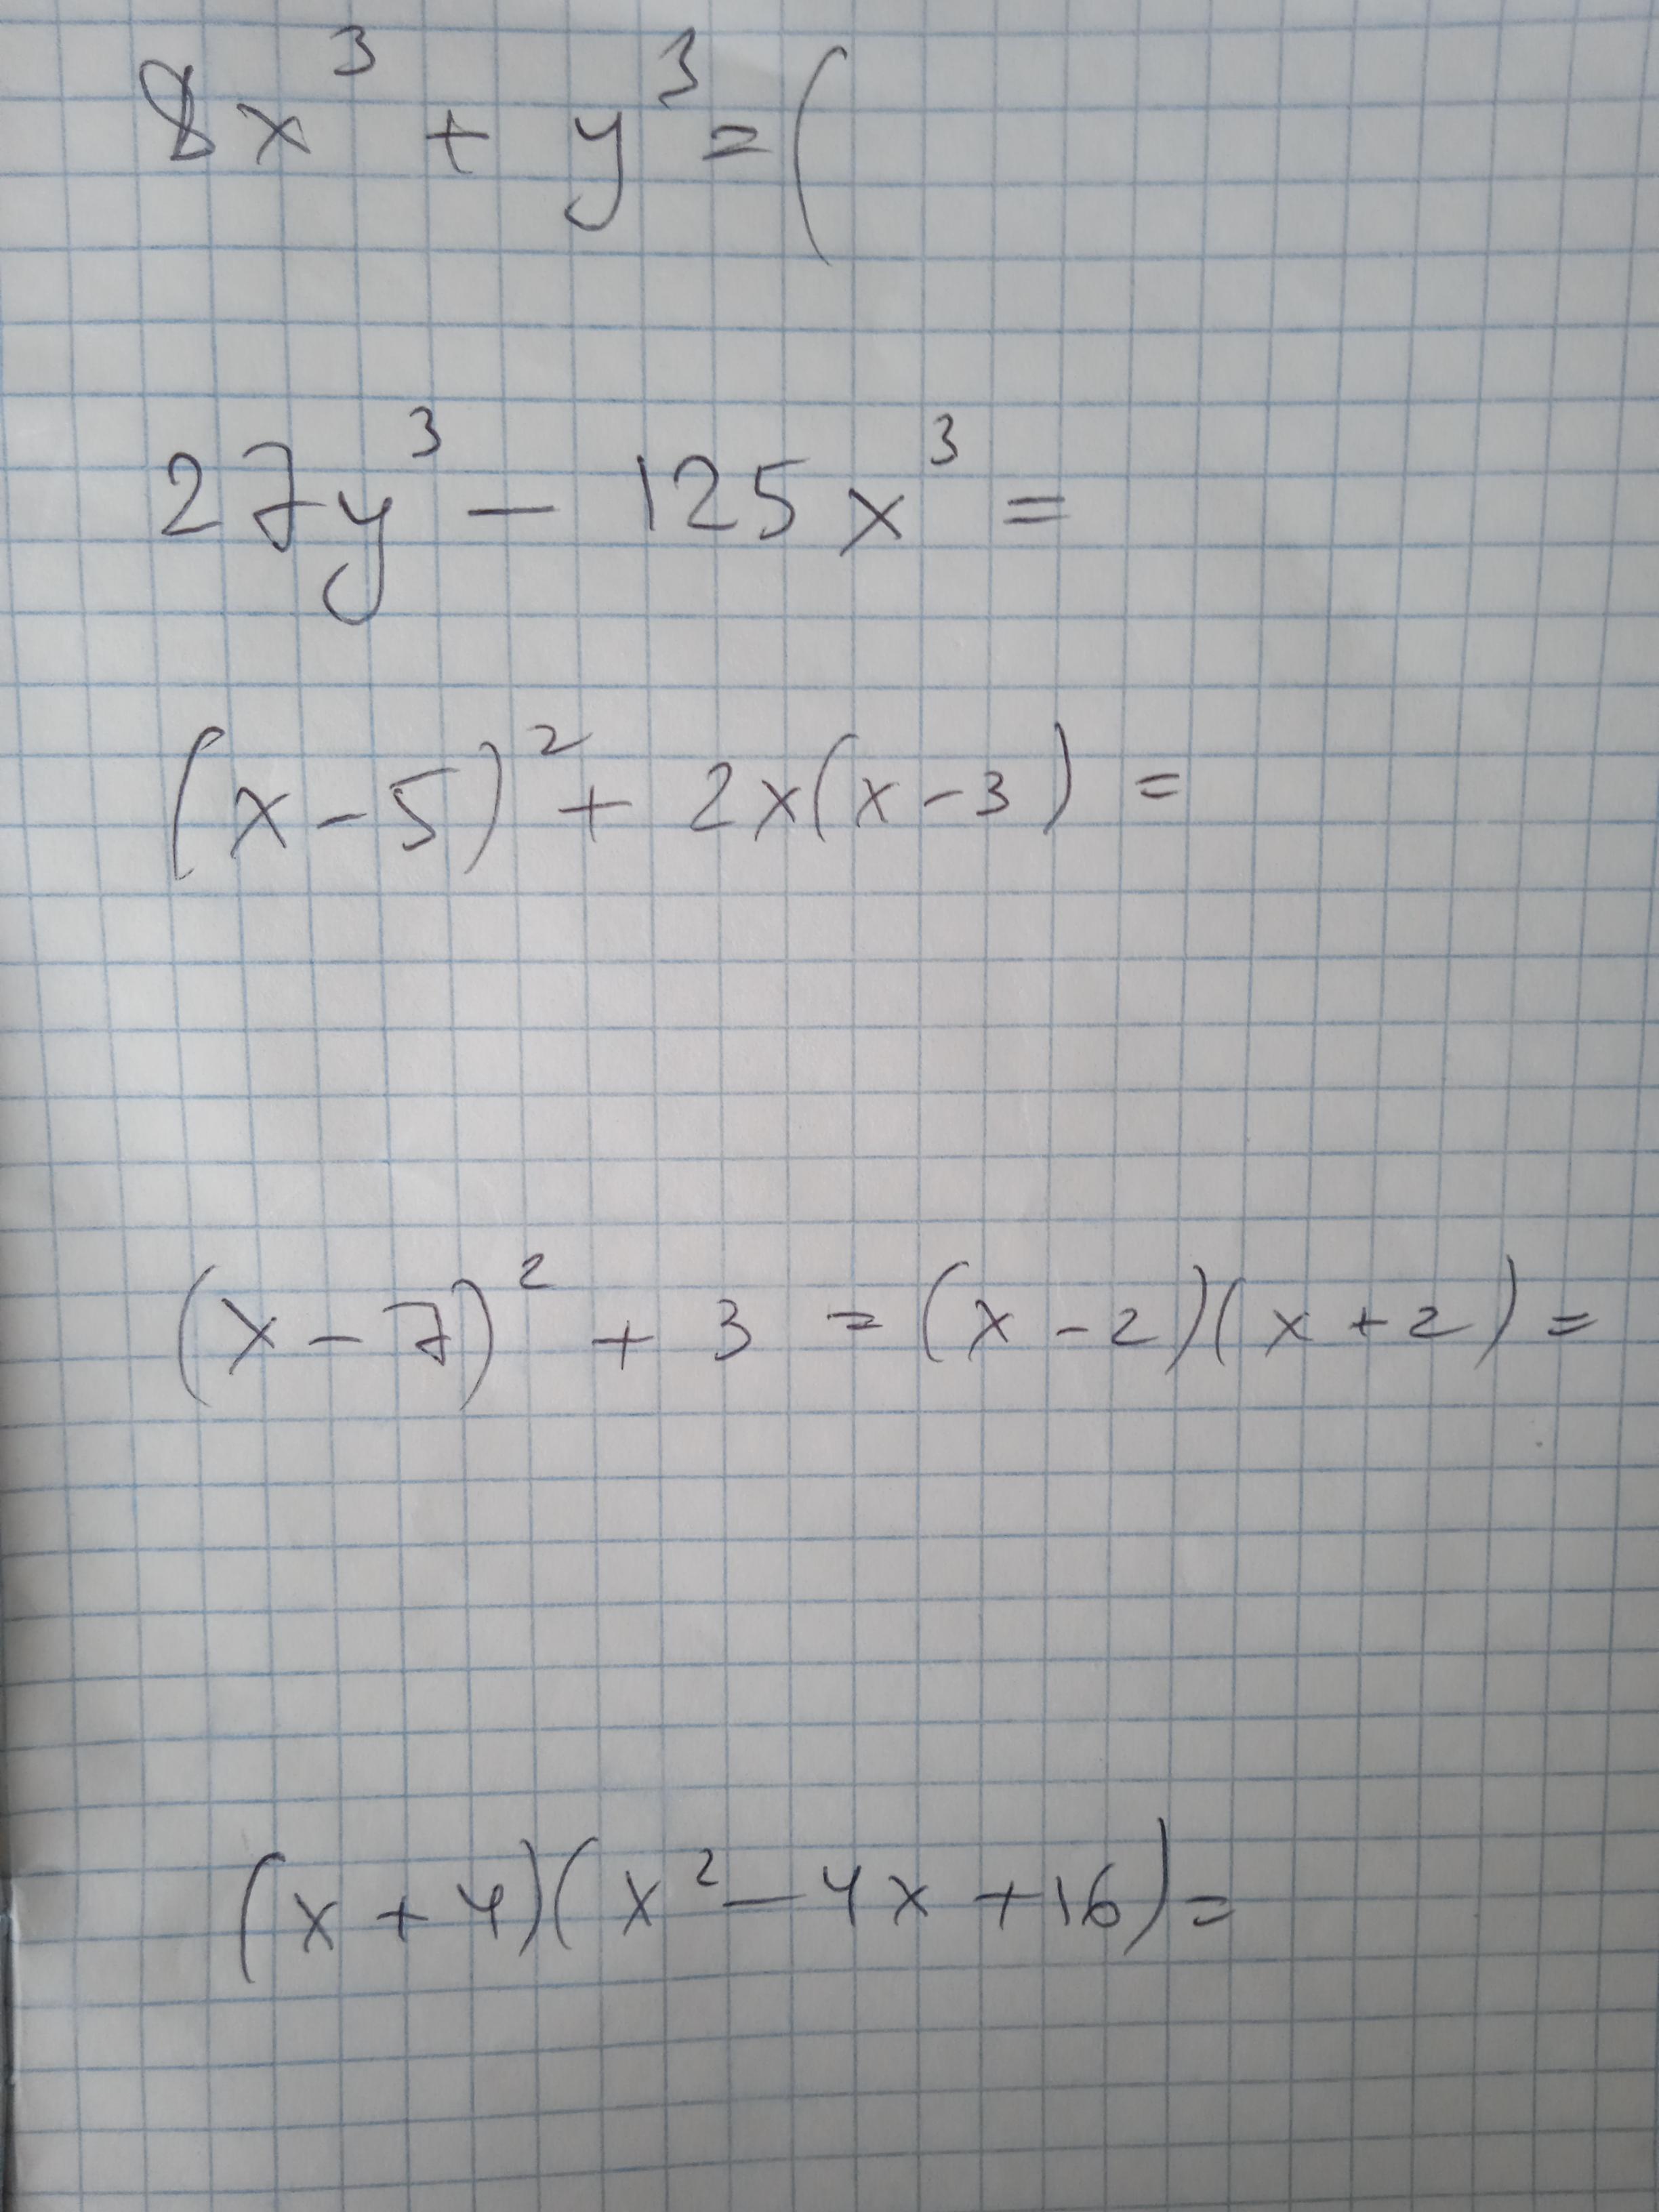 8x³ + y³ = (
27y³ - 125x³ =
(x-5)² + 2x(x-3) =
(x-7)² + 3 = (x-2)(x+2) =
(x+4)(x²-4x+16) =